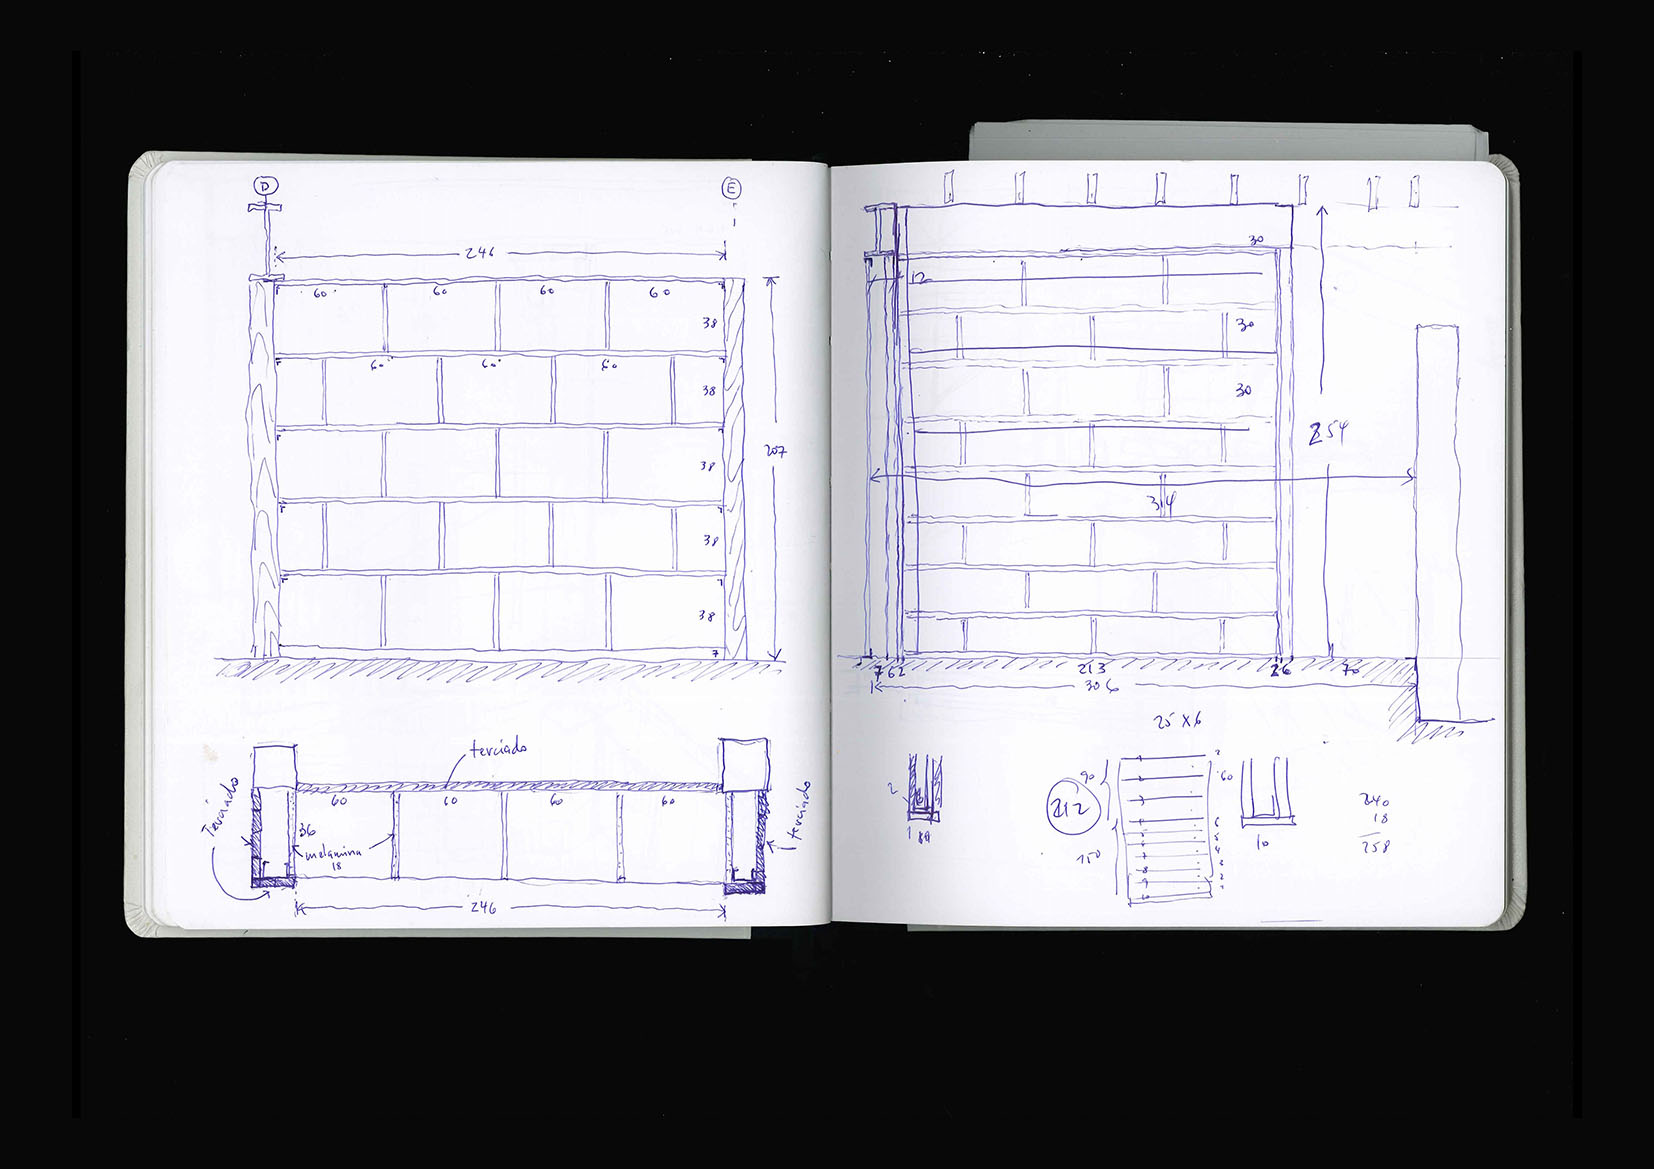 D
E
246
60 60 60 60
38
60 60 60
38
38
38
38
7
207
terciado
Terciado
terciado
60 60 60 60
36
melamina
18
246
30
12
30
30
254
314
7 6 2
213
26
70
306
25 X 6
2
1
90
212
150
60
10
240
18
258